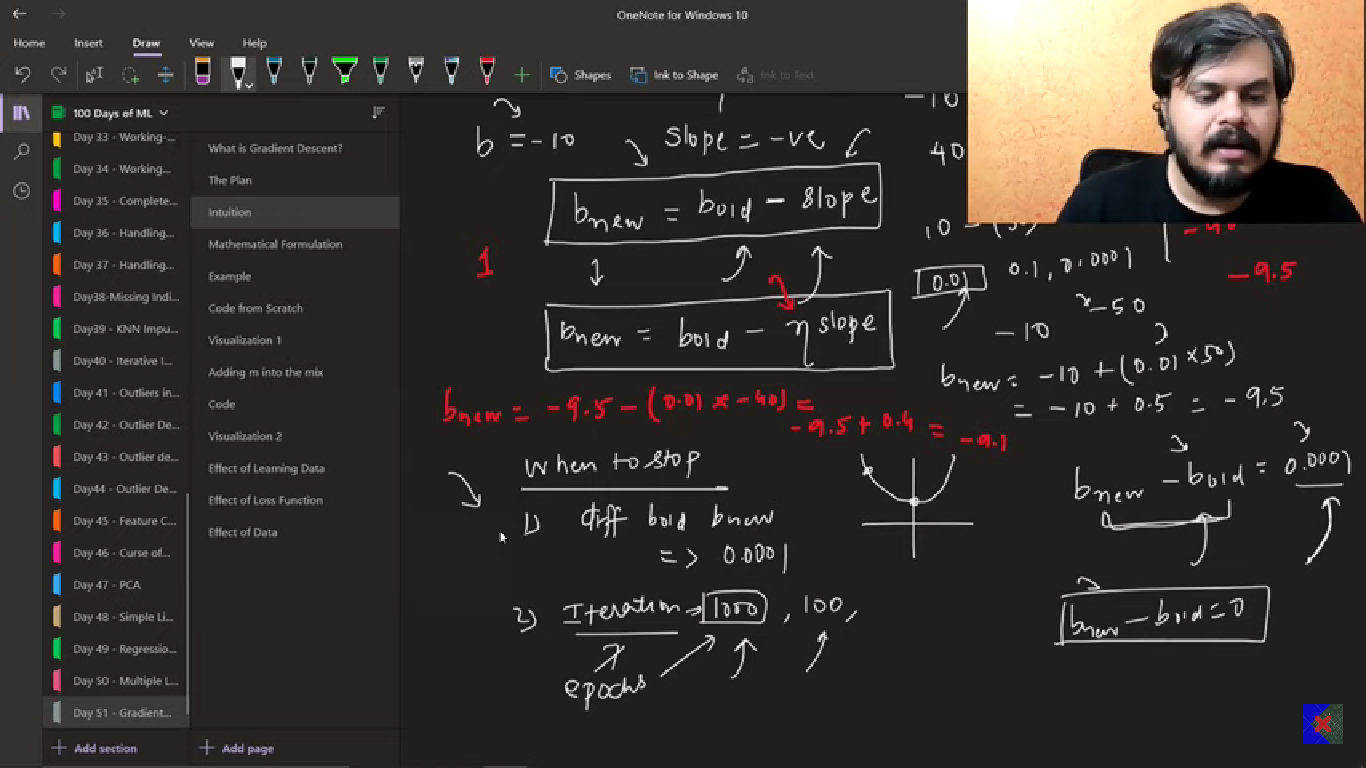 OneNote for Windows 10
Home Insert Draw View Help
Shapes Ink to Shape Ink to Text
100 Days of ML
Day 33 - Working-...
Day 34 - Working...
Day 35 - Complete...
Day 36 - Handling...
Day 37 - Handling...
Day38-Missing Indi...
Day39 - KNN Impu...
Day40 - Iterative I...
Day 41 - Outliers in...
Day 42 - Outlier De...
Day 43 - Outlier de...
Day44 - Outlier De...
Day 45 - Feature C...
Day 46 - Curse of...
Day 47 - PCA
Day 48 - Simple Li...
Day 49 - Regressio...
Day 50 - Multiple L...
Day 51 - Gradient...
Add section
What is Gradient Descent?
The Plan
Intuition
Mathematical Formulation
Example
Code from Scratch
Visualization 1
Adding m into the mix
Code
Visualization 2
Effect of Learning Data
Effect of Loss Function
Effect of Data
Add page
b = -10 slope = -ve
bnew = bold - slope
1
bnew = bold - η slope
bnew = -9.5 - (0.01 x -40) =
-9.5 + 0.4 = -9.1
When to stop
1) diff bold bnew
=> 0.0001
2) Iteration → 1000, 100,
epochs
-10
40
0.01 0.1, 0.0001
-9.5
-50
-10
bnew = -10 + (0.01 x 50)
= -10 + 0.5 = -9.5
bnew - bold = 0.0001
bnew - bold = 0